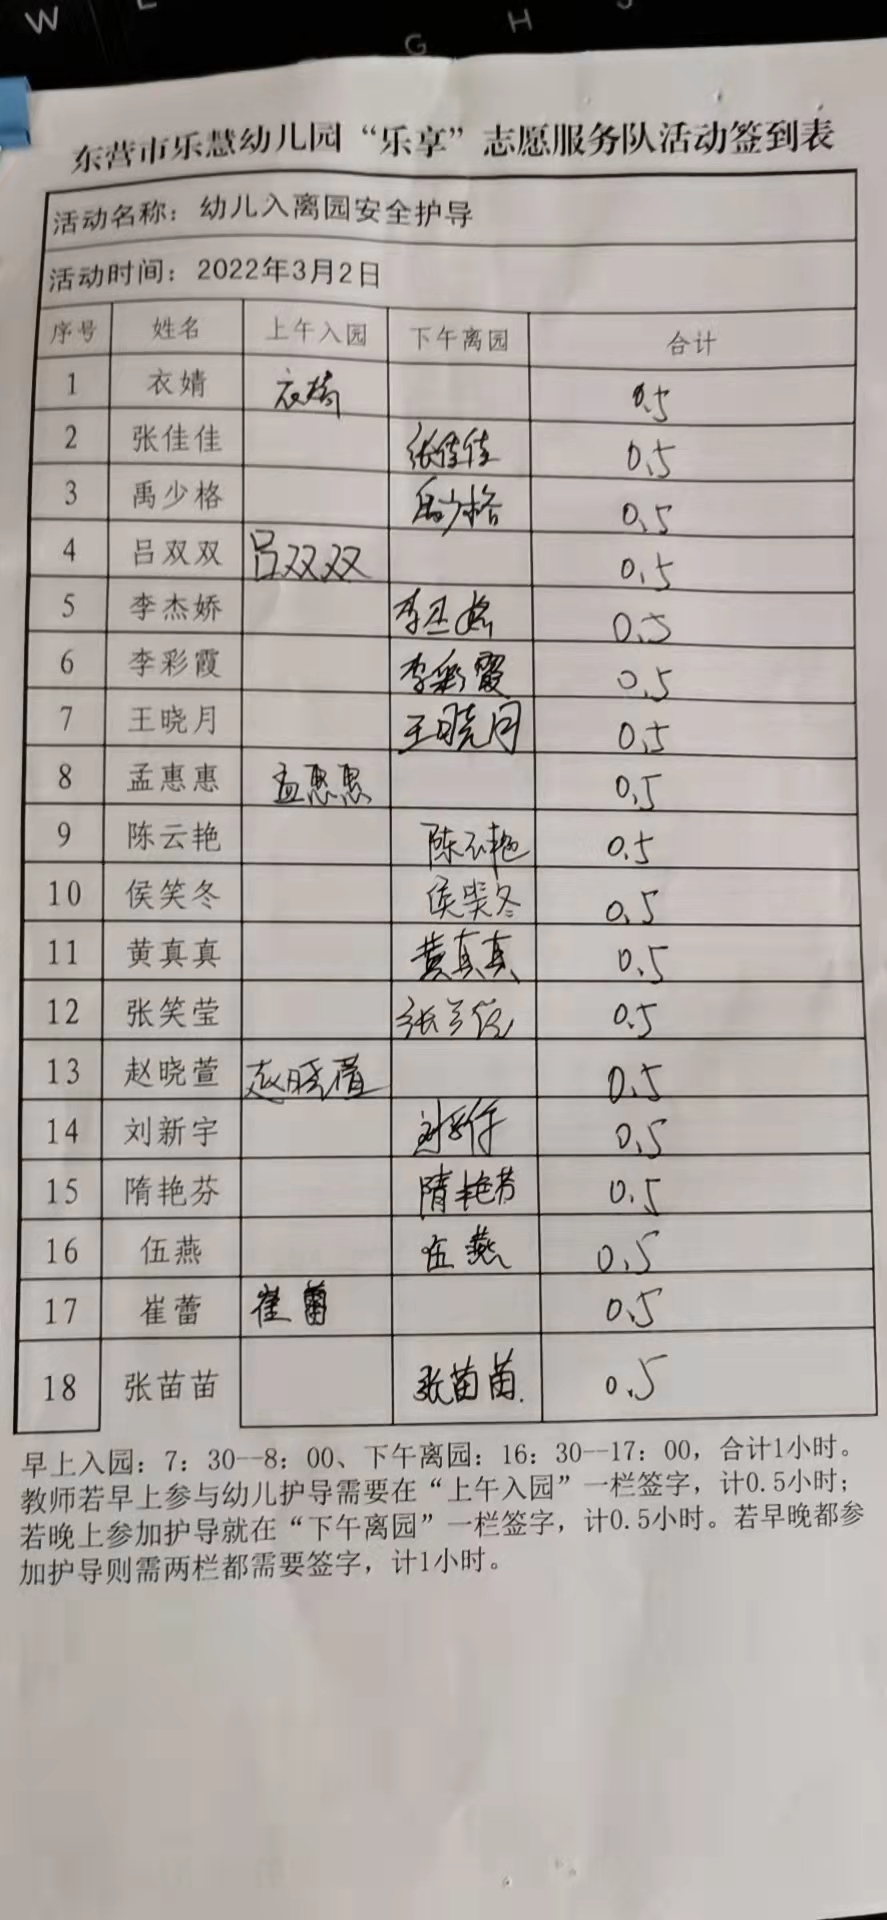 W L G H J
东营市乐慧幼儿园“乐享”志愿服务队活动签到表
活动名称：幼儿入离园安全护导
活动时间：2022年3月2日
序号 姓名 上午入园 下午离园 合计
1 衣婧 衣婧 0.5
2 张佳佳 张佳佳 0.5
3 禹少格 禹少格 0.5
4 吕双双 吕双双 0.5
5 李杰娇 李杰娇 0.5
6 李彩霞 李彩霞 0.5
7 王晓月 王晓月 0.5
8 孟惠惠 孟惠惠 0.5
9 陈云艳 陈云艳 0.5
10 侯笑冬 侯笑冬 0.5
11 黄真真 黄真真 0.5
12 张笑莹 张笑莹 0.5
13 赵晓萱 赵晓萱 0.5
14 刘新宇 刘新宇 0.5
15 隋艳芬 隋艳芬 0.5
16 伍燕 伍燕 0.5
17 崔蕾 崔蕾 0.5
18 张苗苗 张苗苗. 0.5
早上入园：7：30--8：00、下午离园：16：30--17：00，合计1小时。
教师若早上参与幼儿护导需要在“上午入园”一栏签字，计0.5小时；
若晚上参加护导就在“下午离园”一栏签字，计0.5小时。若早晚都参
加护导则需两栏都需要签字，计1小时。